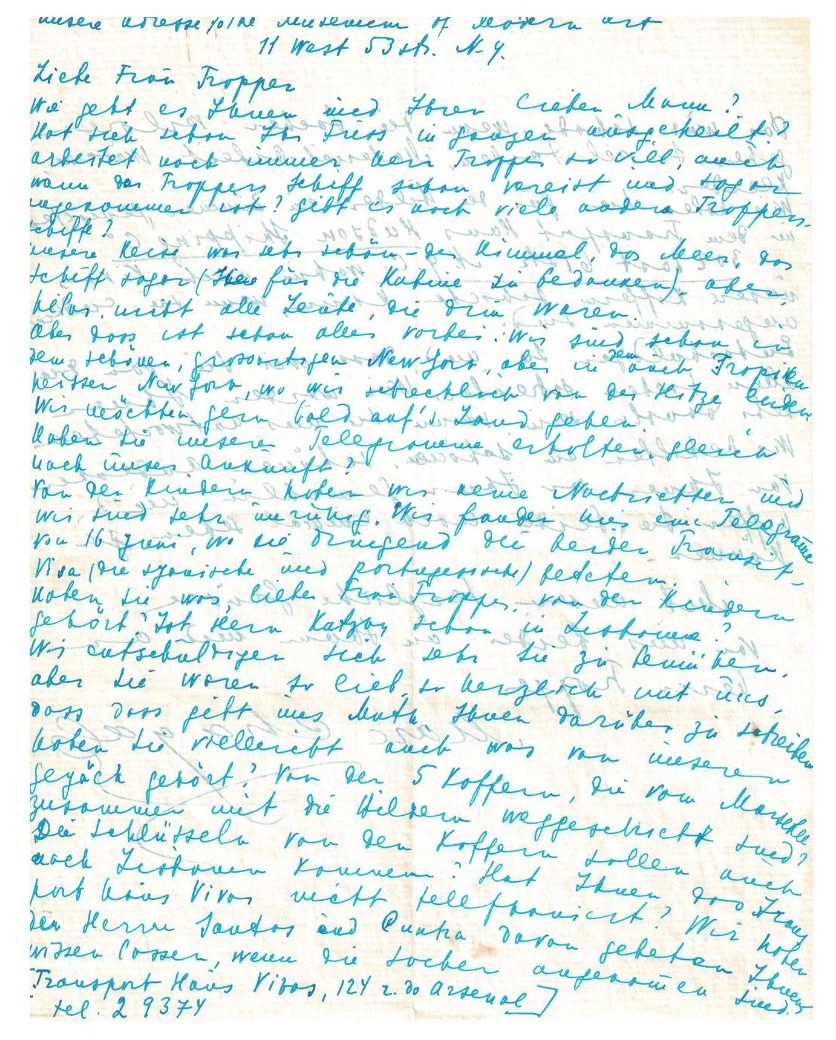 unsere adresse p/o the Museuem of Modern art
11 West 53 str. N.Y.
Liebe Frau Tropper
Wie geht es Ihnen und Ihren Lieben Mann?
Hat sich schon Ihr Fuss in ganzen ausgeheilt?
arbeitet noch immer Herr Tropper so vill, auch
wann das Troppers Schiff schon vereist und sogar
angekommen ist? gibt es noch viele andere Troppers-
schiffe?
unsere Reise war sehr schön – der Himmel, das Meer, das
Schiff sogar (Ihnen für die Kabine zu bedanken), aber
hélas nicht alle Leute, die drin waren.
aber doss ist schon alles vorbei. Wir sind schon in
dem schönen, grossartigen New Jork, aber in dem auch Tropiken
heissen New Jork, wo wir schrechlich von der Hitze leiden
Wir möchten gern bald auf's Land gehen.
Haben Sie unsere Telegramme erhalten gleich
nach unser Ankunft?
Von der Kindern haben wir keine Nachrichten und
wir sind sehr unruhig. Wir fanden hier ein Telegramme
von 16 Juni, wo sie dringend die beiden Transit-
Visa (die spanische und portugesische) betten.
Haben Sie was, liebe Frau Tropper, von der Kindern
gehört? Ist Herr Katzky schon in Lisbonne?
Wir entschuldigen sich sehr Sie zu bemühen,
aber Sie waren so lieb, so herzlich mit uns,
dass doss gibt uns Muth Ihnen darüber zu schreiben
Haben Sie vielleicht auch was von unseren
gepäck gehört? Von der 5 Koffern, die vom Marseille
zusammen mit die Bildern weggeschickt sind?
Die Schlüsseln von den Koffern sollen auch
nach Lisbonen kommen? Hat Ihnen das Trans
port Haus Vivos nicht telefoniert? Wir haben
den Herrn Santos und Cuntra davon gebeten Ihnen
wissen lassen, wenn die sachen angekomen sind.
[Transport Haus Vivos, 124 r. do Arsenal]
tel. 2 9374